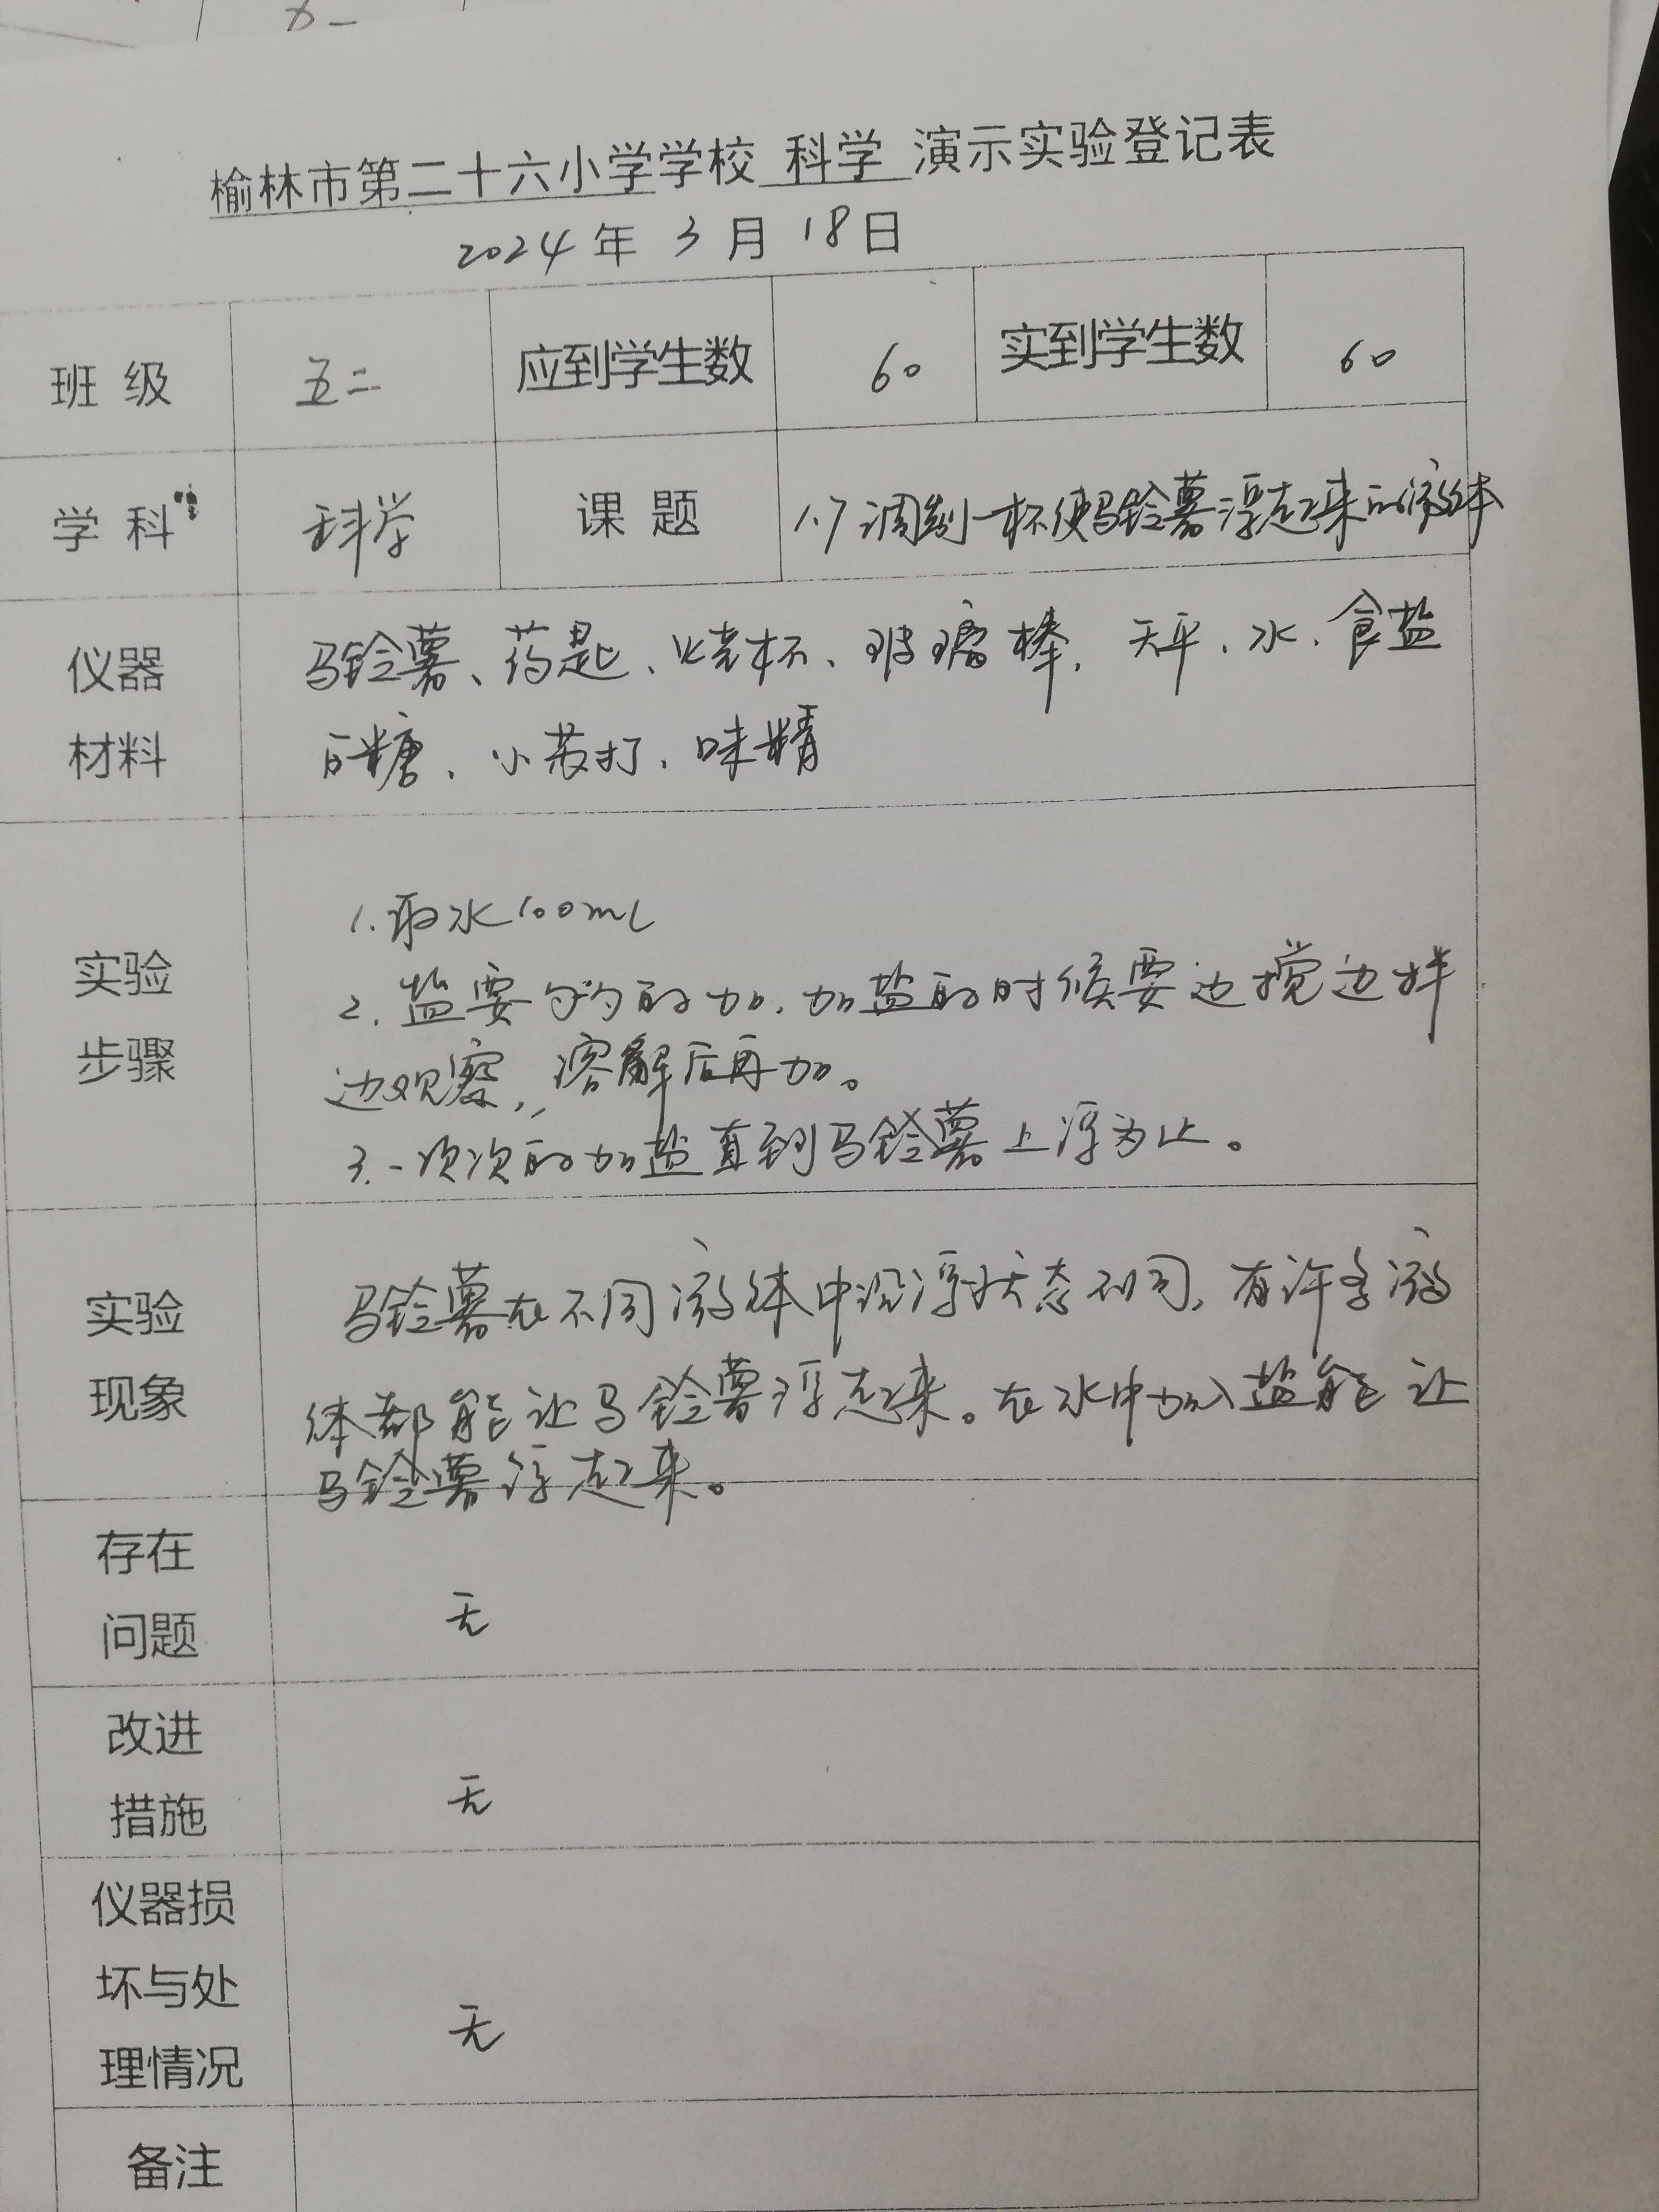 榆林市第二十六小学学校 科学 演示实验登记表
2024年 3月 18日
班级 五二 应到学生数 60 实到学生数 60
学科 科学 课题 1.7调制一杯使马铃薯浮起来的液体
仪器
材料
马铃薯、药匙、烧杯、玻璃棒、天平、水、食盐
白糖、小苏打、味精
实验
步骤
1.取水100mL
2.盐要匀的加,加盐的时候要边搅边拌
边观察,溶解后再加。
3.一次次的加盐直到马铃薯上浮为止。
实验
现象
马铃薯在不同液体中沉浮状态不同,有许多液
体都能让马铃薯浮起来。在水中加入盐能让
马铃薯浮起来。
存在
问题
无
改进
措施
无
仪器损
坏与处
理情况
无
备注